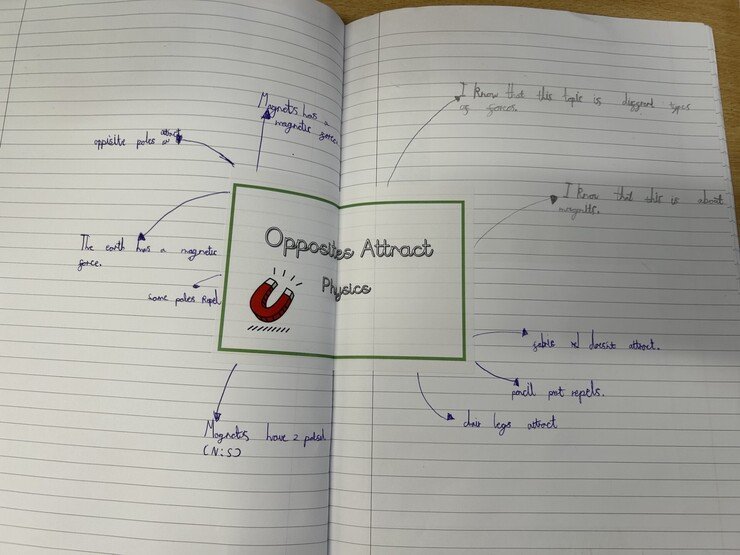 Magnets has a
magnetic force.
opisite poles attract
The earth has a magnetic
force.
same poles Repel
Magnets have 2
(N:S)
Opposites Attract
Physics
I know that this topic is different types
of forces.
I know that this is about
magnets.
doesnt attract.
pencil pot repels.
chair legs attract